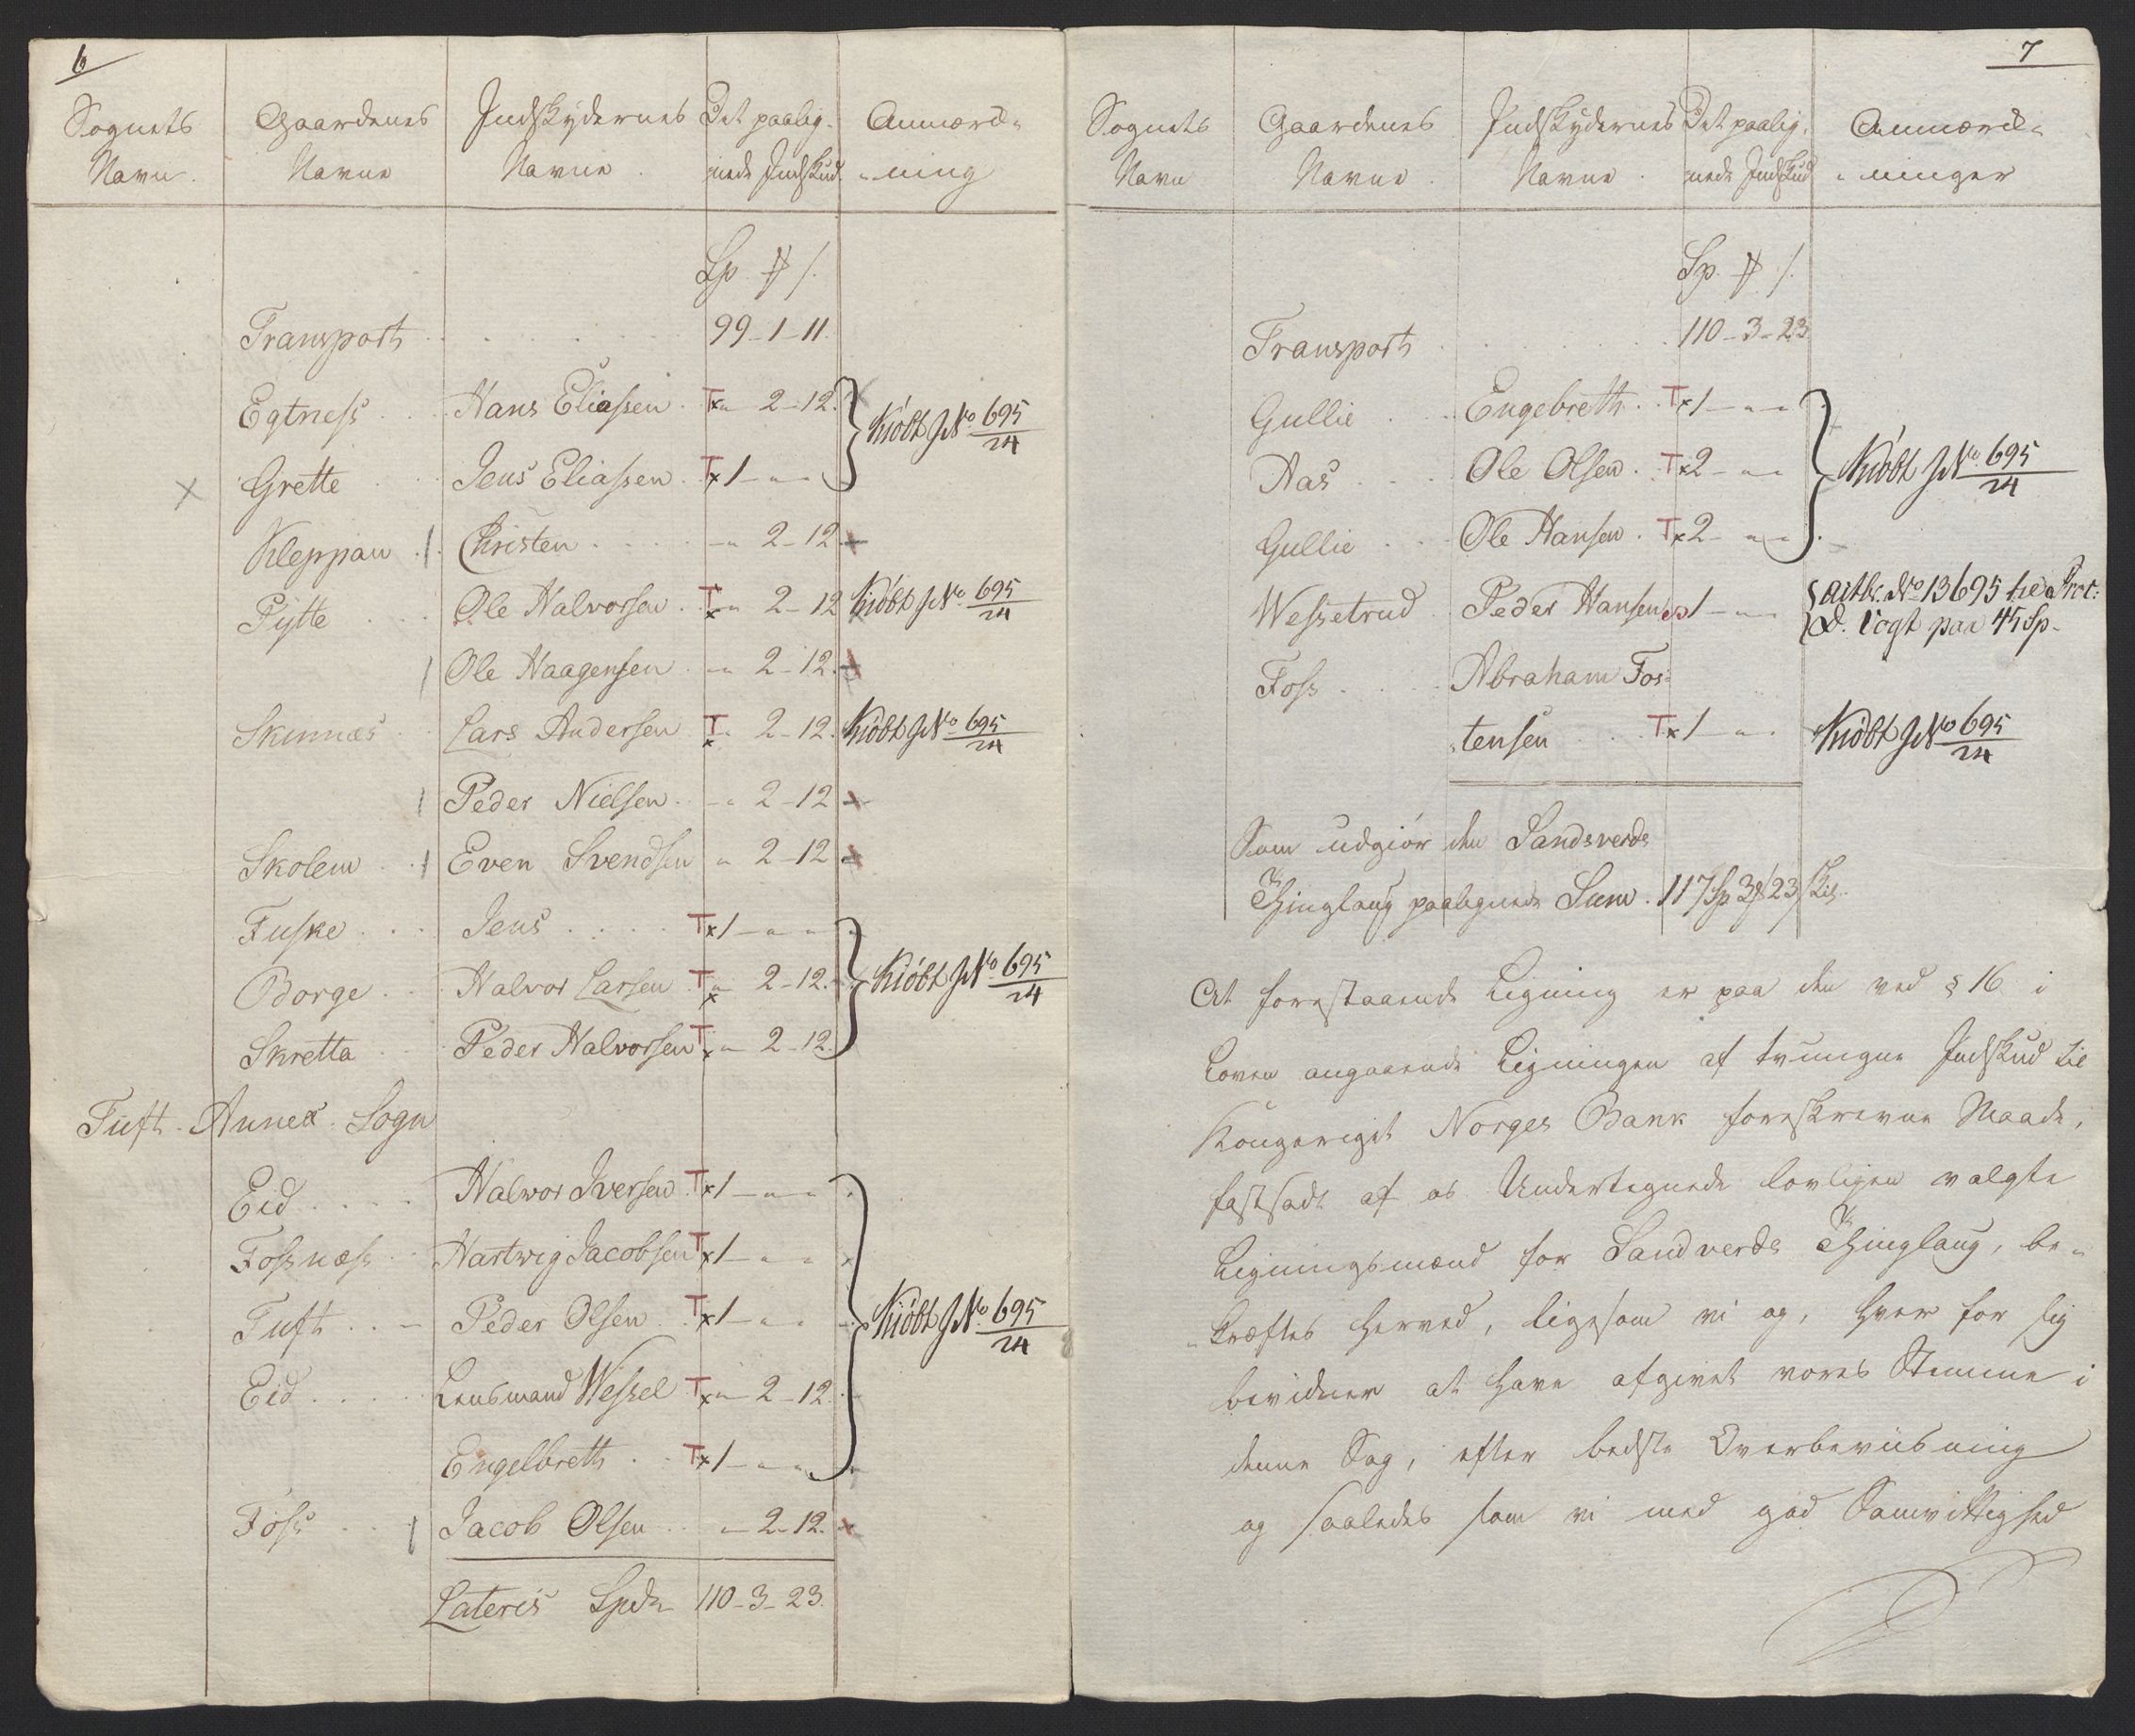 6
Sognets Gaardenes Indskydernes Det paalig- Anmærk-
Navn. Navne Navne. nede Indskud -ning
Sp. ₰ /.
Transport 99-1-11.
Egtness Hans Eliassen T x " 2-12.
Kiöbt J No 695/24
× Grette Jens Eliassen T x 1 - " - "
Kleppan Christen - " 2-12 +
Pytte Ole Halvorsen T x " 2-12 Kiöbt J No 695/24
Ole Haagensen - " 2-12. +
Skinnæs Lars Andersen T x " 2-12. Kiöbt J No 695/24
Peder Nielsen - " 2-12 +
Skolem Even Svendsen " 2-12 +
Fuske Jens T x 1 - " - "
Borge Halvor Larsen T x " 2-12. Kiöbt J No 695/24
Skretta Peder Halvorsen T x " 2-12.
Tuft Annex Sogn
Eid Halvor Iversen T x 1 - " - "
Fossnæss Hartvig Jacobsen T x 1 - " - "
Tuft Peder Olsen T x 1 - " - " Kiöbt J No 695/24
Eid Lensmand Wessel T x " 2-12.
Engelbreth T x 1 - " - "
Foss Jacob Olsen - 2-12. +
Lateris Spd 110-3-23.
7
Sognets Gaardenes Indskydernes Det paalig- Anmærk-
Navn Navne. Navne. nede Indskud -ninger
Sp. ₰ /.
Transport 110-3-23
Gullie Engebreth T x 1 - " - "
Aas Ole Olsen T x 2 - " - " Kiöbt J No 695/24
Gullie Ole Hansen T x 2 - " - "
Wessetrud Peder Hansen 1 - " - No 13695
Vogt paa 45 Sp.
Foss Abraham Tos-
-tensen T x 1 - " Kiöbt J No 695/24
Som udgiør den Sandsverds
Thinglaug paalignede Sum. 117 Sp 3 ₰ 23 Skil.
At forestaaende Ligning er paa den ved § 16 i
Loven angaaende Ligningen af tvungne Indskud til
Kongeriget Norges Bank foreskrevne Maade,
fastsadt af os Undertegnede lovligen valgte
Ligningsmænd for Sandsverds Thinglaug, be-
-kræftes herved, ligesom vi og, hver for sig
bevidner at have afgivet vores Stemme i
denne Sag, efter bedste Overbeviisning
og saaledes som vi med god Samvittighed